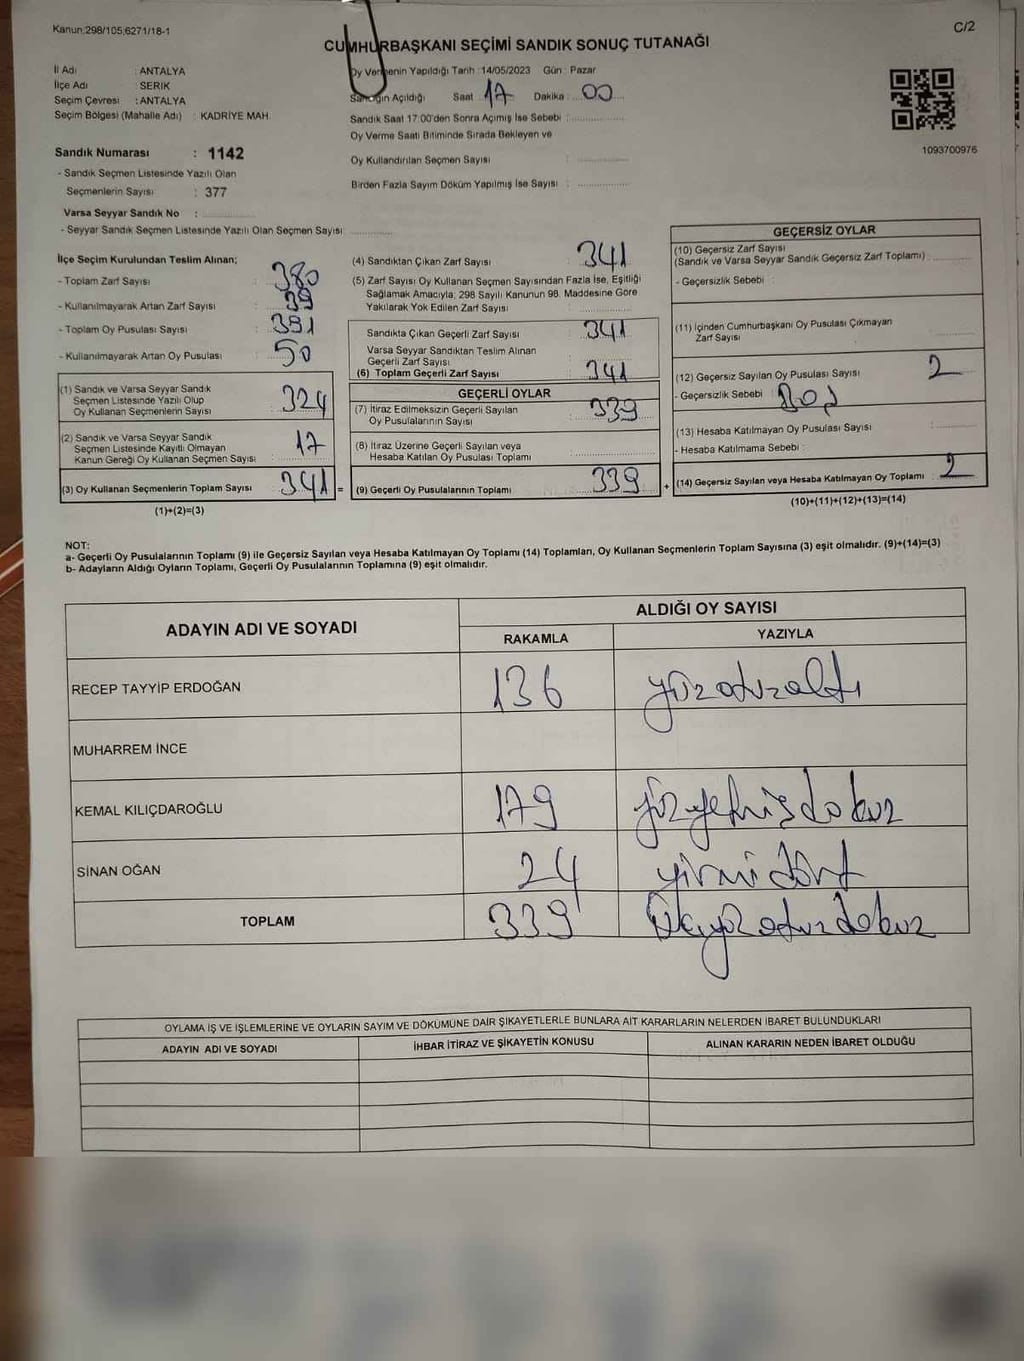 Kanun;298/105;6271/18-1
C/2
CUMHURBAŞKANI SEÇİMİ SANDIK SONUÇ TUTANAĞI
İl Adı : ANTALYA
İlçe Adı : SERİK
Seçim Çevresi : ANTALYA
Seçim Bölgesi (Mahalle Adı) : KADRİYE MAH.
Oy Vermenin Yapıldığı Tarih :14/05/2023 Gün : Pazar
Sandığın Açıldığı Saat 17 Dakika : 00
Sandık Saat 17:00'den Sonra Açımış İse Sebebi :
Oy Verme Saati Bitiminde Sırada Bekleyen ve
Oy Kullandırılan Seçmen Sayısı :
Birden Fazla Sayım Döküm Yapılmış İse Sayısı :
1093700976
Sandık Numarası : 1142
- Sandık Seçmen Listesinde Yazılı Olan
Seçmenlerin Sayısı : 377
Varsa Seyyar Sandık No :
- Seyyar Sandık Seçmen Listesinde Yazılı Olan Seçmen Sayısı:
İlçe Seçim Kurulundan Teslim Alınan;
- Toplam Zarf Sayısı : 380
- Kullanılmayarak Artan Zarf Sayısı : 39
- Toplam Oy Pusulası Sayısı : 391
- Kullanılmayarak Artan Oy Pusulası : 50
(1) Sandık ve Varsa Seyyar Sandık
Seçmen Listesinde Yazılı Olup
Oy Kullanan Seçmenlerin Sayısı : 324
(2) Sandık ve Varsa Seyyar Sandık
Seçmen Listesinde Kayıtlı Olmayan
Kanun Gereği Oy Kullanan Seçmen Sayısı : 17
(3) Oy Kullanan Seçmenlerin Toplam Sayısı : 341 =
(1)+(2)=(3)
(4) Sandıktan Çıkan Zarf Sayısı : 341
(5) Zarf Sayısı Oy Kullanan Seçmen Sayısından Fazla İse, Eşitliği
Sağlamak Amacıyla; 298 Sayılı Kanunun 98. Maddesine Göre
Yakılarak Yok Edilen Zarf Sayısı :
Sandıkta Çıkan Geçerli Zarf Sayısı : 341
Varsa Seyyar Sandıktan Teslim Alınan
Geçerli Zarf Sayısı
(6) Toplam Geçerli Zarf Sayısı : 341
GEÇERLİ OYLAR
(7) İtiraz Edilmeksizin Geçerli Sayılan
Oy Pusulalarının Sayısı : 339
(8) İtiraz Üzerine Geçerli Sayılan veya
Hesaba Katılan Oy Pusulası Toplamı :
(9) Geçerli Oy Pusulalarının Toplamı : 339 +
GEÇERSİZ OYLAR
(10) Geçersiz Zarf Sayısı
(Sandık ve Varsa Seyyar Sandık Geçersiz Zarf Toplamı) :
- Geçersizlik Sebebi :
(11) İçinden Cumhurbaşkanı Oy Pusulası Çıkmayan
Zarf Sayısı
(12) Geçersiz Sayılan Oy Pusulası Sayısı : 2
- Geçersizlik Sebebi : Boş
(13) Hesaba Katılmayan Oy Pusulası Sayısı :
- Hesaba Katılmama Sebebi :
(14) Geçersiz Sayılan veya Hesaba Katılmayan Oy Toplamı : 2
(10)+(11)+(12)+(13)=(14)
NOT:
a- Geçerli Oy Pusulalarının Toplamı (9) ile Geçersiz Sayılan veya Hesaba Katılmayan Oy Toplamı (14) Toplamları, Oy Kullanan Seçmenlerin Toplam Sayısına (3) eşit olmalıdır. (9)+(14)=(3)
b- Adayların Aldığı Oyların Toplamı, Geçerli Oy Pusulalarının Toplamına (9) eşit olmalıdır.
ADAYIN ADI VE SOYADI
ALDIĞI OY SAYISI
RAKAMLA YAZIYLA
RECEP TAYYİP ERDOĞAN 136 yüzotuzaltı
MUHARREM İNCE
KEMAL KILIÇDAROĞLU 179 yüzyetmişdokuz
SİNAN OĞAN 24 yirmidört
TOPLAM 339 üçyüzotuzdokuz
OYLAMA İŞ VE İŞLEMLERİNE VE OYLARIN SAYIM VE DÖKÜMÜNE DAİR ŞİKAYETLERLE BUNLARA AİT KARARLARIN NELERDEN İBARET BULUNDUKLARI
ADAYIN ADI VE SOYADI İHBAR İTİRAZ VE ŞİKAYETİN KONUSU ALINAN KARARIN NEDEN İBARET OLDUĞU